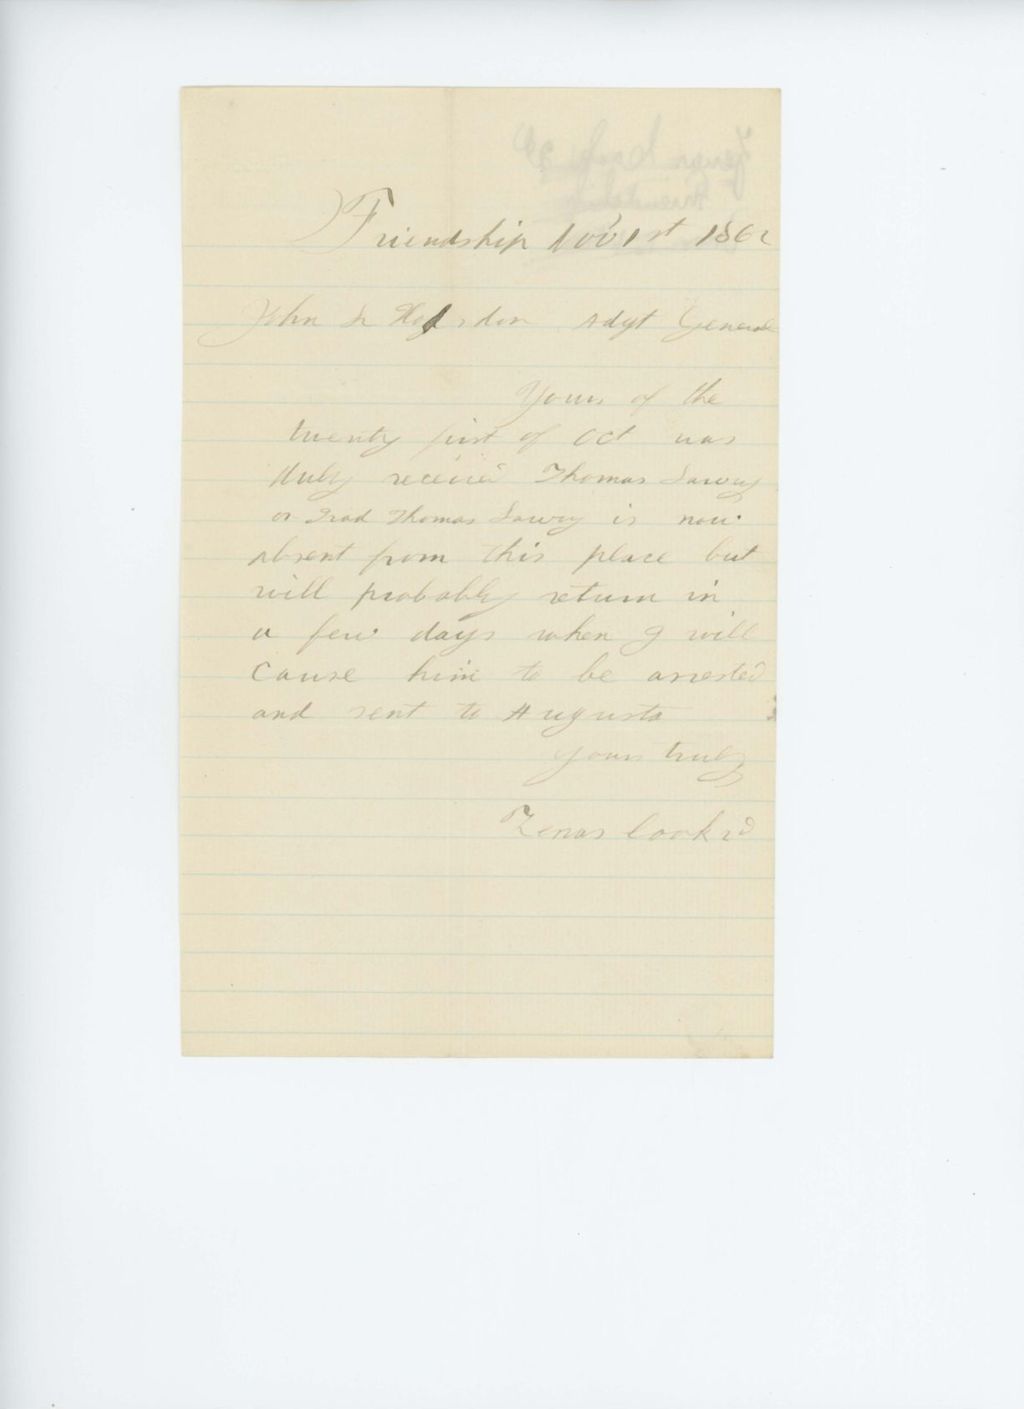 Friendship Nov 1st 1862
John L Hodsdon Adgt General
Yours of the
twenty first of Oct was
duly receivd Thomas Lawry
or Thomas Lawry is now
absent from this place but
will probably return in
a few days when I will
cause him to be arrested
and sent to Augusta
Yours truly
Zenas Cook 2d